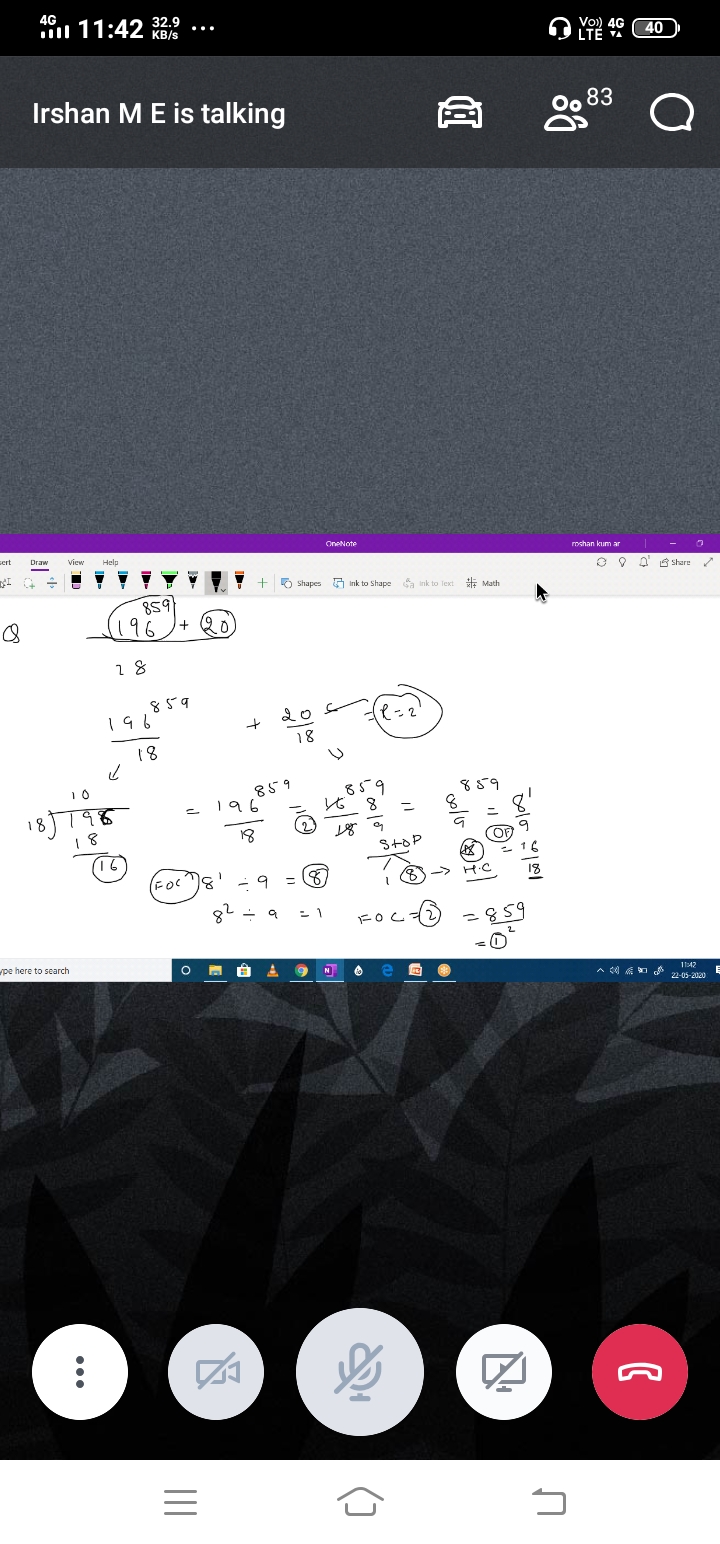 4G 11:42 32.9 KB/s ... Vo) LTE 4G 40
Irshan M E is talking 83
OneNote roshan kum ar
sert Draw View Help Share
Shapes Ink to Shape Ink to Text Math
Q 196^859 + 20
18
196^859 / 18 + 20 / 18 = r=2
10
18) 196 = 196^859 / 18 = 16^859 / 18 8 / 9 = 8^859 / 9 = 8^1 / 9
2
18
16
STOP OF
FOC 8^1 ÷ 9 = 8 1 8 → H.C = 16 / 18
8^2 ÷ 9 = 1 FOC = 2 = 859 / 2
= 1
ype here to search 11:42
22-05-2020